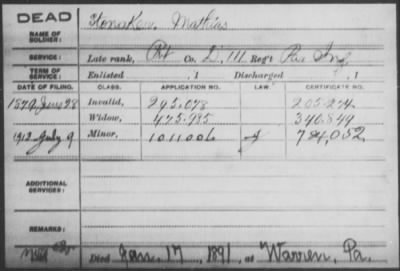 DEAD
NAME OF SOLDIER: Honaker, Mathias
SERVICE: Late rank, Pvt Co. D, 111 Reg't Pa Inf
TERM OF SERVICE: Enlisted , 1 Discharged , 1
DATE OF FILING. CLASS. APPLICATION NO. LAW. CERTIFICATE NO.
1879 June 28 Invalid, 295.078 205.274
Widow, 475.985 346.849
1912 July 9 Minor, 1011006 784,052
ADDITIONAL SERVICES:
REMARKS:
Died Jan. 17, 1891, at Warren, Pa.